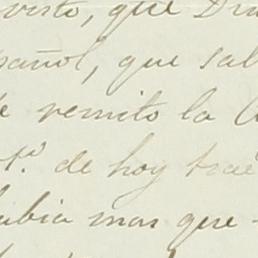 visto, que
pañol, que sal
remito la
de hoy trae
más que